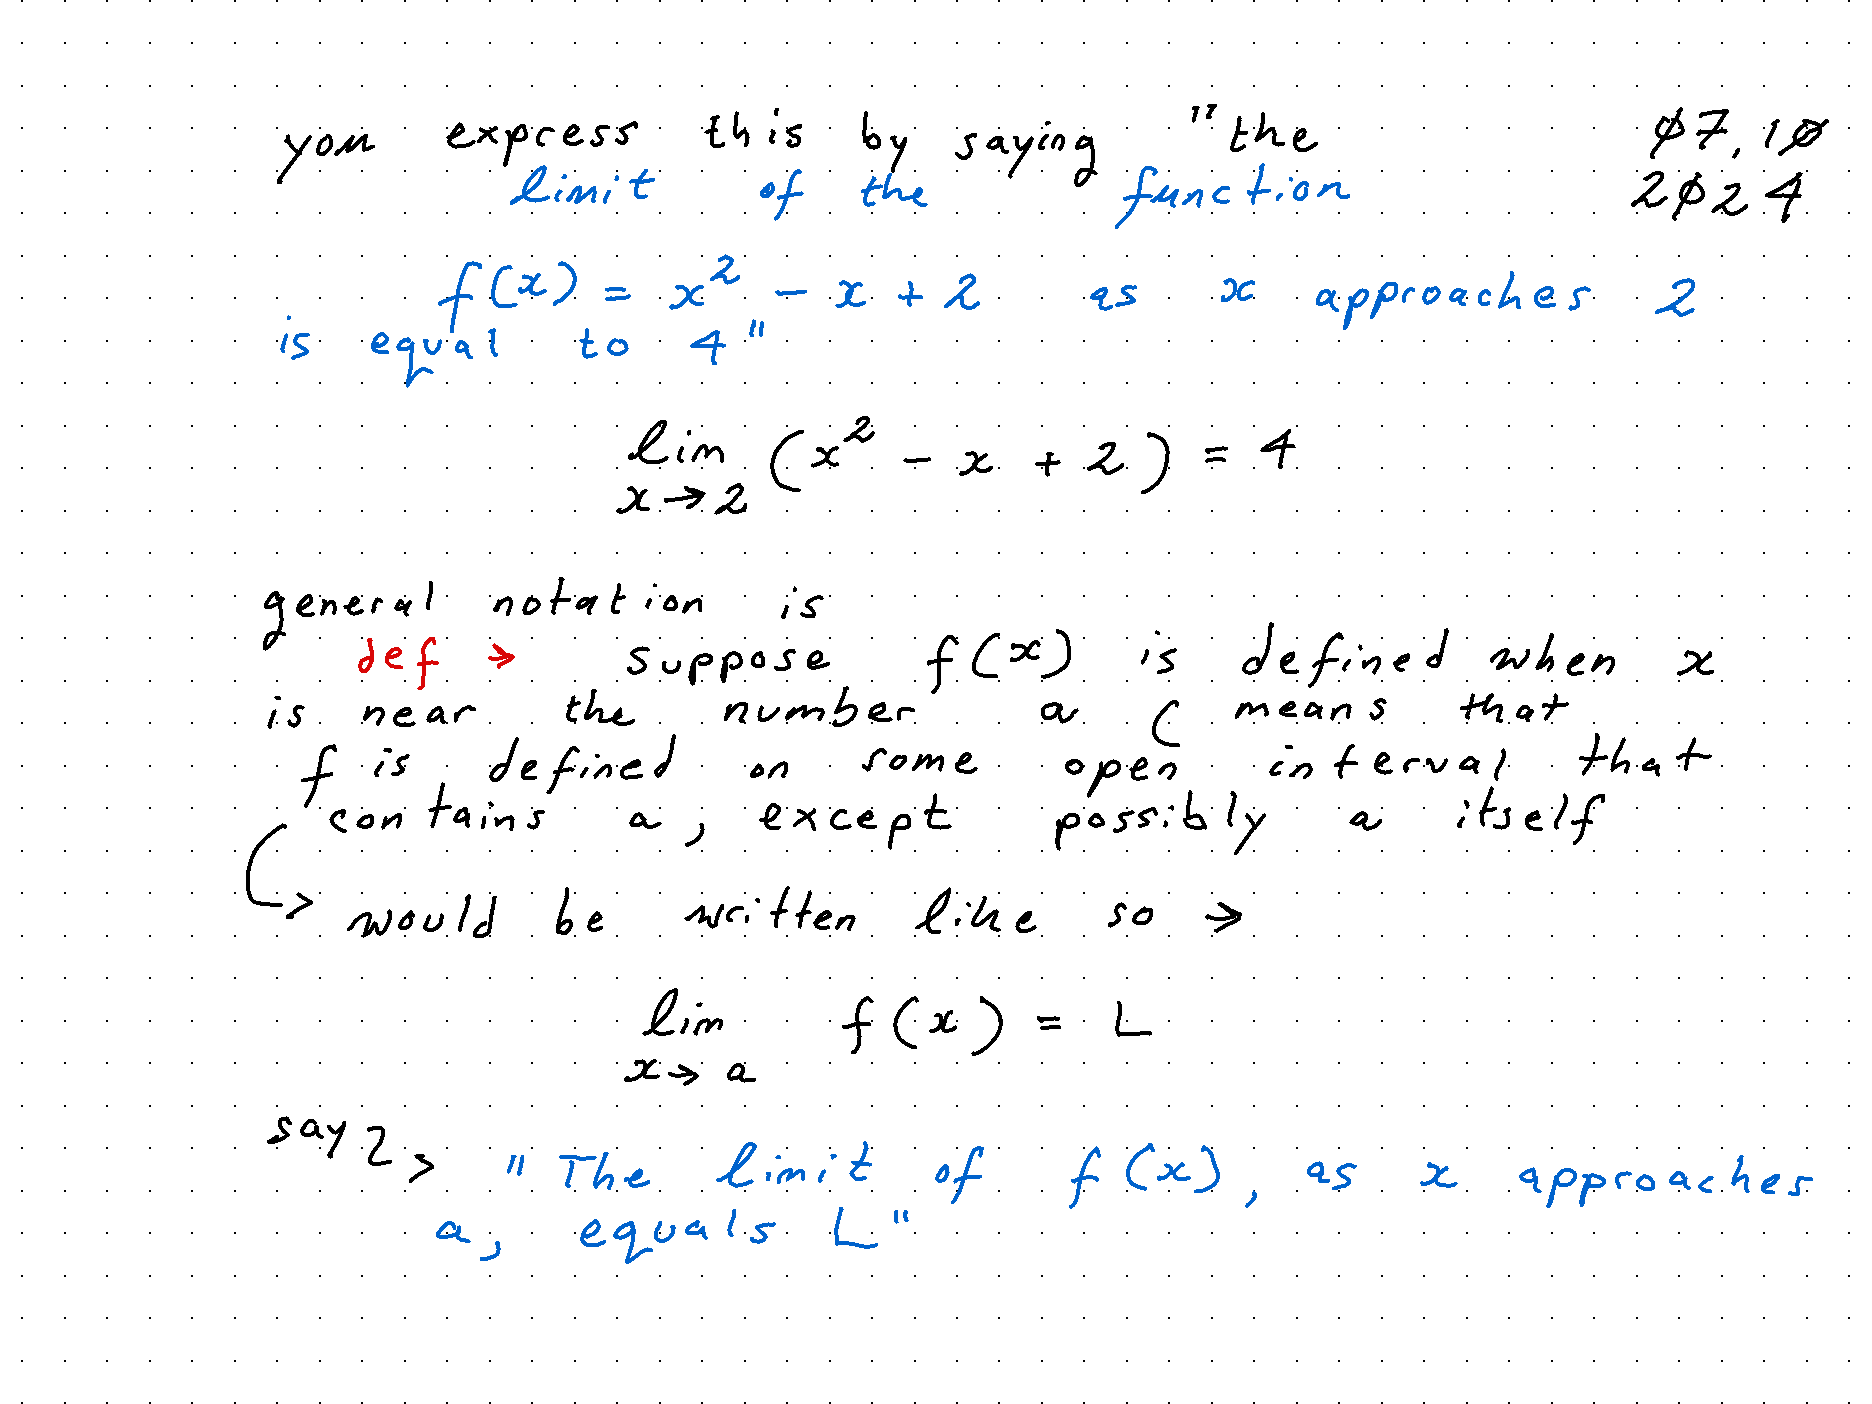 you express this by saying "the
07,10
2024
limit of the function
f(x) = x² - x + 2 as x approaches 2
is equal to 4"
lim (x² - x + 2) = 4
x→2
general notation is
def → suppose f(x) is defined when x
is near the number a ( means that
f is defined on some open interval that
contains a, except possibly a itself
→ would be written like so →
lim f(x) = L
x→a
say → "The limit of f(x), as x approaches
a, equals L"